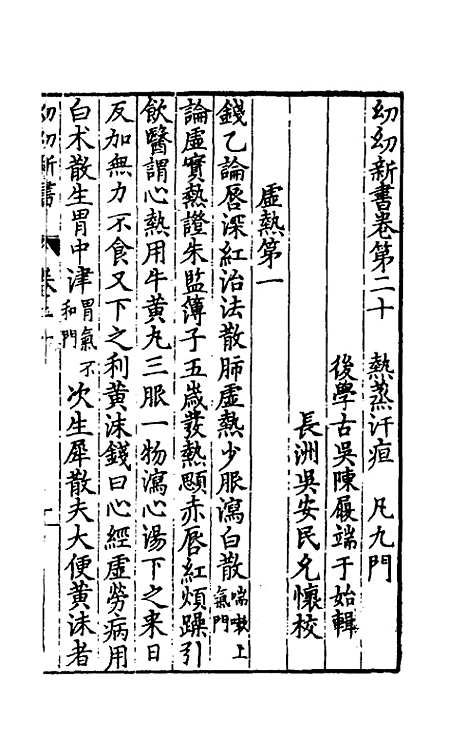 幼幼新書卷第二十　熱蒸汗疸　凡九門
後學古吳陳履端于始輯
長洲吳安民允懷校
虛熱第一
錢乙論唇深紅治法散肺虛熱少服瀉白散喘嗽上氣門
論虛實熱證朱監簿子五歲發熱顋赤唇紅煩躁引
飲醫謂心熱用牛黃丸三服一物瀉心湯下之来日
反加無力不食又下之利黃沫錢曰心經虛勞病用
白术散生胃中津胃氣不和門次生犀散夫大便黃沫者
幼幼新書